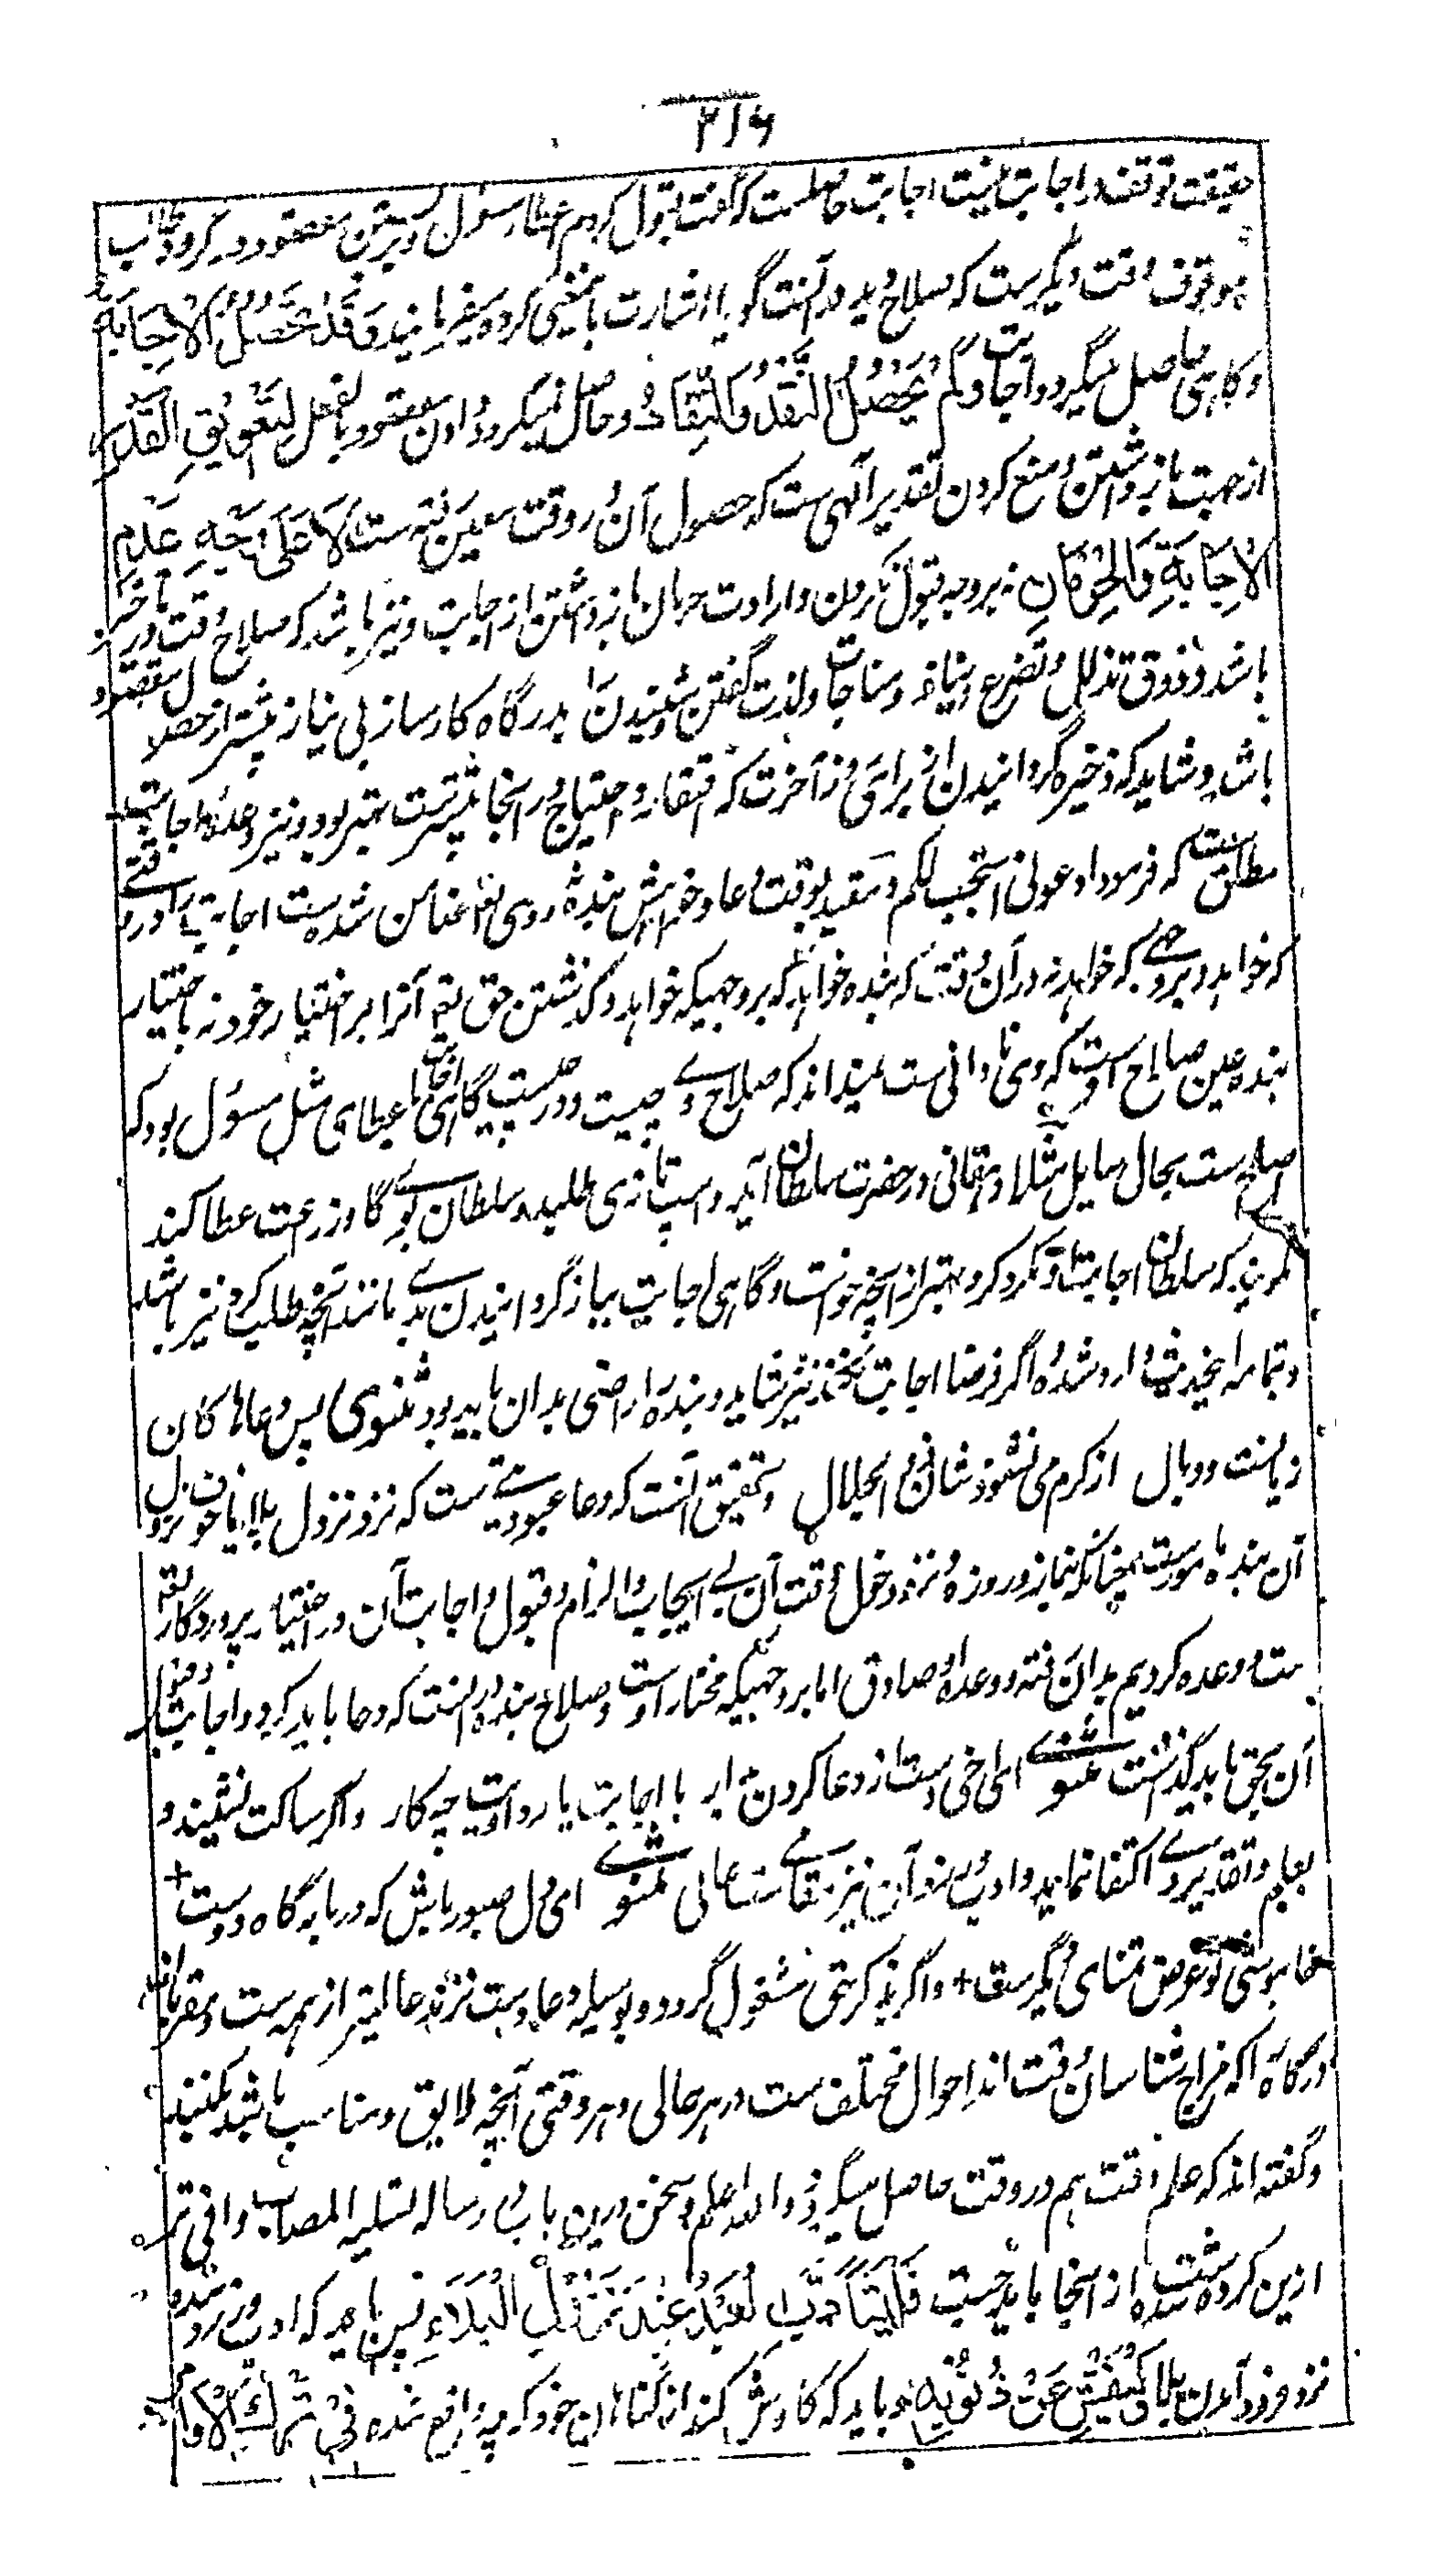 ۲۱۶
حقیقت توقف در اجابت نیست اجابت حاصلست که گفت قبول کردم عطا و سئول و برین مقصود
موقوف وقت دیگرست که صلاح در آنست گویا اشارت باینمعنی کرد و میفرمایند وَقَدْ تَحْصُلُ الْاِجَابَةُ
و گاهی حاصل میگردد اجابت وَلَمْ یَحْصُلُ النَّقْدُ وَالنِّفَاذُ و حاصل نمیگردد دادن مقصود بالفعل لِتَعْوِیْقِ الْقَدَرِ
از جهت باز داشتن و منع کردن تقدیر آلهی ست که حصول آن در وقت معین نهاده ست لَا عَلٰی وَجْهِ عَدَمِ
الْاِجَابَةِ وَالْحِرْمَانِ نه بر وجه قبول نکردن و ارادت حرمان باز داشتن از اجابت و نیز باشد که صلاح وقت در تاخیر
باشد و ذوق تذلل و تضرع و نیاز و مناجات و لذت گفتن و شنیدن بدرگاه کارساز بی نیاز بیشتر از حصول مقصود
باشد و شاید که ذخیره گردانیدن از برای روز آخرت که افتقار و احتیاج در آنجا بیشترست بهتر بود و نیز وعدهٔ اجابت
مطلق ست که فرمود ادعونی استجب لکم و مقید بوقت دعا و خواهش بنده نه روی تعالی ضامن شده ست اجابت را در وقتے
که خواهد و بر وجهے که خواهد نه در آن وقت که بنده خواهد که بر وجهیکه خواهد و گذاشتن حق تعه آنرا بر اختیار خود نه باختیار
بنده عین صلاح اوست که وی نادانی ست نمیداند که صلاح وے چیست و در چیست گاهی اجابت با عطای مثل مسئول بود که
صلاح ست بحال سایل مثلا دهقانی در حضرت سلطان آید و اسپ تازی طلبد و سلطان ویرا گاو زرعت عطا کند
گویند که سلطان اجابت او نکرد کرد بهتر از آنچه خواست و گاهی اجابت بباز گردانیدن بدے مانند آنچه طلب کرد نیز باشد
اگر فرضا اجابت نکند نیز شاید و بنده را راضی بدان باید بود مثنوی پس دعاها کان
زیانست و وبال از کرم می نشنود شان ذو الجلال و تحقیق آنست که دعا عبودیتے ست که نزد نزول بلا یا خوف نزول
آن بنده مامورست همچنانکه نماز و روزه نزد دخول وقت آن بے ایجاب و الزام و قبول و اجابت آن در اختیار پروردگار تعه
ست و وعده کردیم بدان نه و وعده او صادق اما بر وجهیکه مختار اوست و صلاح بنده در آنست که دعا باید کرد و اجابت و رد
آن بحق باید گذاشت مثنوے ای اخی دست از دعا کردن مدار با اجابت یا رد اوت چه کار و اگر ساکت نشیند و
بعلم و تقدیر وے اکتفا نماید و ادب نزد آن نیز مقامے ست عالی مثنوے ای دل صبور باش که در بارگاه دوست +
خاموشی تو عرض تمنای دیگرست + و اگر بذکر حق مشغول گردد و بوسیله دعا دست نزند عالیتر از همه ست و مقربان
درگاه را که مزاج شناسان وقت اند احوال مختلف ست در هر حالی و هر وقتی آنچه لایق و مناسب باشد بکنند
و گفته اند که علم وقت هم در وقت حاصل میگردد و الله اعلم و سخن درین باب در رساله تسلیة المصاب وافی تر
ازین کرده شده ست از آنجا باید جست فَلْیَتَأَدَّبْ الْعَبْدُ عِنْدَ نُزُوْلِ الْبَلَاءِ پس باید که ادب ورزد بنده
نزد فرود آمدن بلا وَ لْیُفَتِّشْ عَنْ ذُنُوْبِهٖ و باید که کاوش کند از گناهان خود که چه واقع شده فِیْ تَرْکِ الْاَوَامِرِ